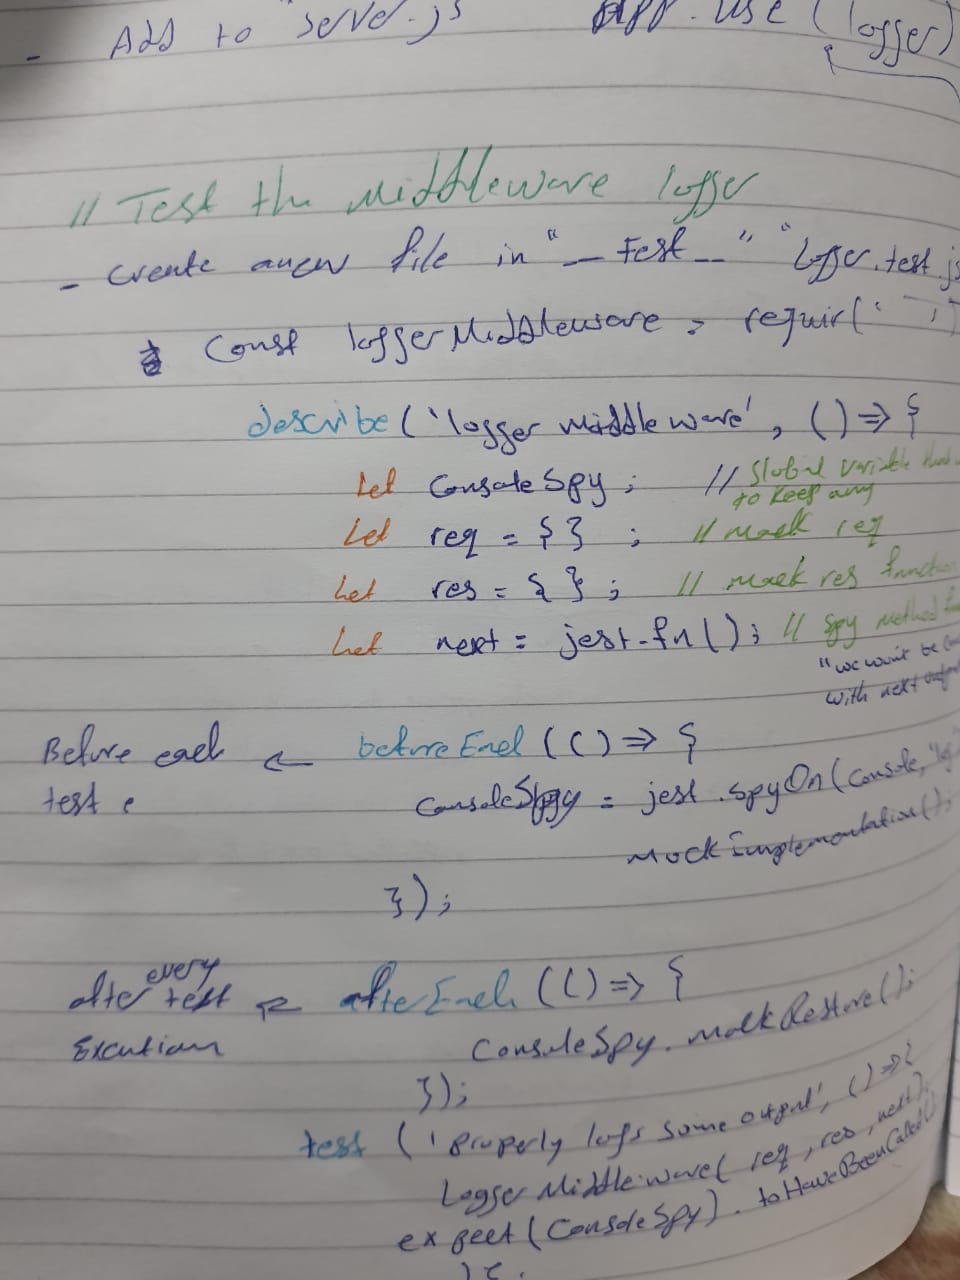 - Add to serve.js app.use (logger)
// Test the Middleware logger
- create anew file in "__test__" "logger.test.js
Const loggerMiddleware = requir(' ')
describe('logger middleware', () => {
Let ConsoleSpy; // Global variable
to keep any
Let req = {} ; // mock req
Let res = { } ; // mock res function
Let next = jest.fn(); // Spy method
"we won't be
with next
Before each ← beforeEach (() => {
test : ConsoleSpy = jest.spyOn(Console, "log"
mockImplementation();
});
after every test ← afterEach (() => {
Excution ConsoleSpy.mockRestore();
});
test ('properly logs some output', () => {
Logger Middleware( req, res, next);
expect(ConsoleSpy).toHaveBeenCalled()
});